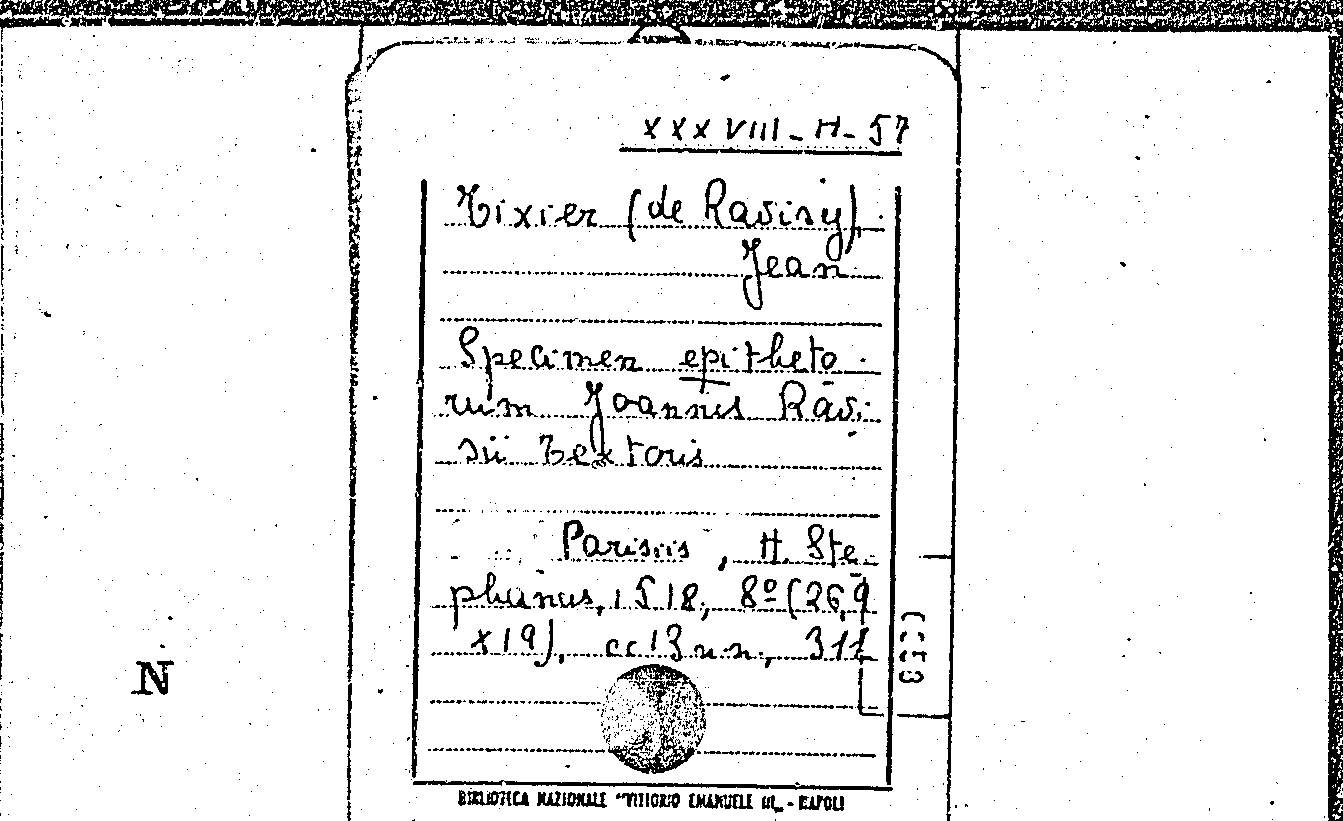 XXXVIII-H-57
Tixier (de Ravisy),
Jean
Specimen epitheto-
rum Joannis Ravi-
sii Textoris
Parisiis, H. Ste-
phanus, 1518, 8º (26,9
x19), cc 13 n.n., 311
N
BIBLIOTECA NAZIONALE "VITTORIO EMANUELE III" - NAPOLI